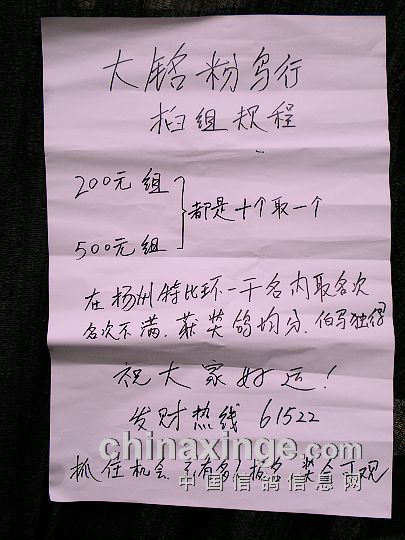 大铭粉鸟行
指组规程
200元组
500元组
都是十个取一个
在扬州特比环一千名内取名次
名次不满.获奖鸽均分.伯马独得
祝大家好运!
发财热线 61522
chinaxinge.com
中国信鸽信息网
抓住机会 奖金可观